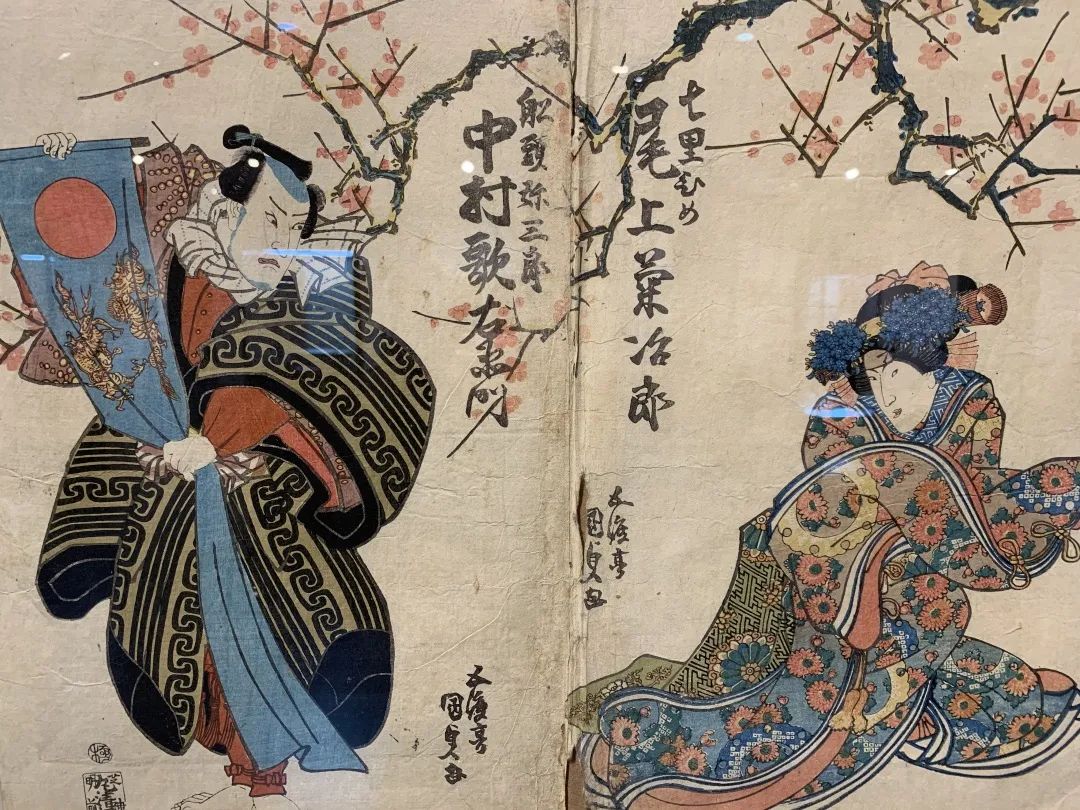 七里ひめ
尾上菊次郎
五渡亭
國貞画
舩頭弥三郎
中村歌右衛門
五渡亭
國貞画
極